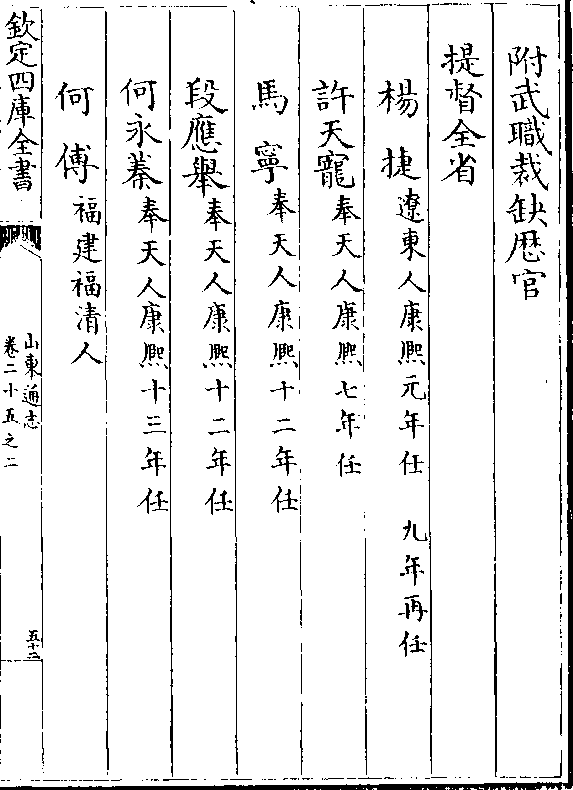 附武職裁缺歴官
提督全省
楊捷遼東人康熙元年任 九年再任
許天寵奉天人康熙七年任
馬寧奉天人康熙十二年任
段應舉奉天人康熙十二年任
何永蓁奉天人康熙十三年任
何傅福建福清人
欽定四庫全書
山東通志
卷二十五之二
五十二